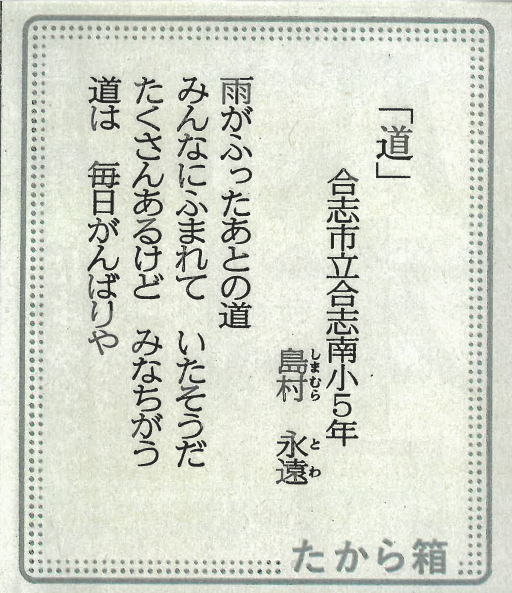 「道」
合志市立合志南小5年
島村 永遠
しまむら とわ
雨がふったあとの道
みんなにふまれて いたそうだ
たくさんあるけど みなちがう
道は 毎日がんばりや
たから箱